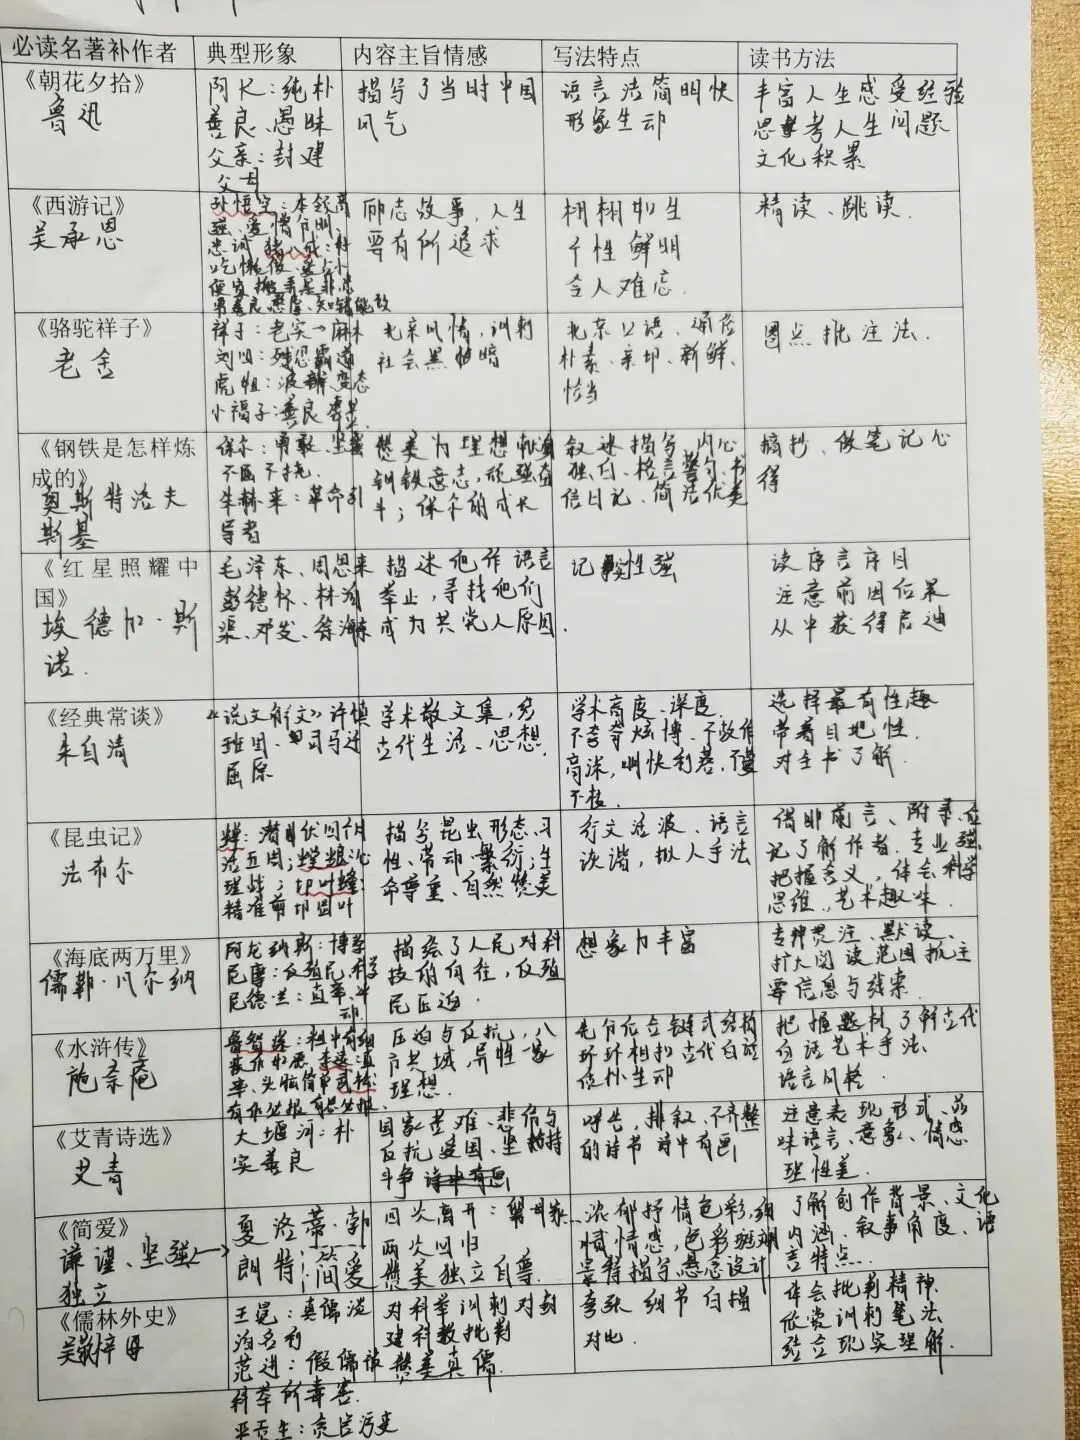 必读名著补作者 典型形象 内容主旨情感 写法特点 读书方法
《朝花夕拾》
鲁迅
阿长：纯朴
善良、愚昧
父亲：封建
父母
描写了当时中国
风气
语言活简明快
形象生动
丰富人生感受经验
思考人生问题
文化积累
《西游记》
吴承恩
孙悟空：本领高
强、爱憎分明
忠诚 猪八戒：好
吃懒做、爱占小
便宜 搬弄是非
励志故事，人生
要有所追求
栩栩如生
个性鲜明
令人难忘．
精读、跳读．
《骆驼祥子》
老舍
祥子：老实→麻木
刘四：残忍霸道
虎妞：泼辣变态
小福子：善良
北京风情，讽刺
社会黑暗
北京口语、通俗
朴素、亲切、新鲜、
恰当
圈点批注法．
《钢铁是怎样炼
成的》
奥斯特洛夫
斯基
保尔：勇敢、坚强
不屈不挠．
朱赫来：革命引
导者
赞美为理想献身
钢铁意志，顽强奋
斗；保尔的成长
叙述描写，内心
独白、格言警句、书
信日记、简洁优美
摘抄、做笔记心
得
《红星照耀中
国》
埃德加·斯
诺．
毛泽东、周恩来
彭德怀、林
渠、邓发、徐海东
描述他作语言
举止，寻找他们
成为共党人原因．
记实性强
读序言序目
注意前因后果
从中获得启迪
《经典常谈》
朱自清
《说文解文》许慎
班固、司马迁
屈原
学术散文集，
古代生活、思想．
学术高度、深度．
不夸夸炫博、不故作
高深，明快利落、
不枝．
选择最有性趣
带着目地性．
对全书了解．
《昆虫记》
法布尔
蝉：潜伏四年
活五周；螳螂
理战；切叶蜂：
精准剪切圆叶
描写昆虫形态、习
性、劳动、繁衍；生
命尊重、自然赞美
行文活泼、语言
诙谐，拟人手法
借助前言、附录、
记了解作者、专业
把握含义，体会科学
思维、艺术趣味．
《海底两万里》
儒勒·凡尔纳
阿龙纳斯：博学
尼摩：反殖民、科学
尼德·兰：直率、冲
动．
描绘了人民对科
技的向往，反殖
民压迫．
想象力丰富
专神贯注、默读、
扩大阅读范围抓主
要信息与线索．
《水浒传》
施奈庵
鲁智深：粗中有细
李逵：直
率、头脑简单 武松：
有仇必报 有恩必报、
压迫与反抗，八
方共域，异性一家
理想．
先分后合链式结构
环环相扣古代白话
质朴生动
把握题材，了解古代
白话艺术手法、
语言风格．
《艾青诗选》
艾青
大堰河：朴
实善良
国家苦难、悲伤与
反抗爱国、坚持
斗争
呼告，排叙、不齐整
的诗节 诗中有画
注意表现形式、品
味语言、意象、情感
理性美．
《简爱》
谦谨、坚强
独立
夏洛蒂·勃
朗特：简爱
四次离开：
两次回归
赞美独立自尊．
浓郁抒情色彩，细
情感，色彩斑斓
景物描写悬念设计
了解创作背景、文化
内涵、叙事角度、语
言特点．
《儒林外史》
吴敬梓
王冕：真儒淡
泊名利
范进：假儒被
科举所毒害．
严贡生：贪官污吏
对科举讽刺对封
建科教批判
赞美真儒．
夸张 细节 白描
对比．
体会批判精神
欣赏讽刺笔法
结合现实理解．